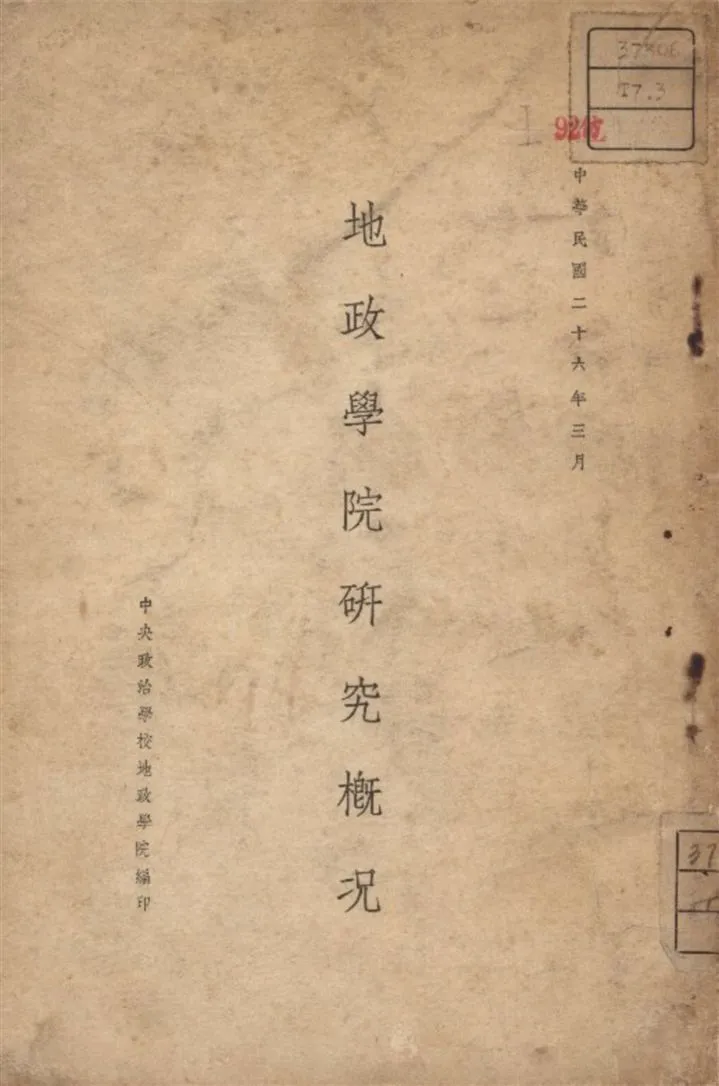 中華民國二十六年三月
地政學院研究概况
中央政治學校地政學院編印
17.3
37